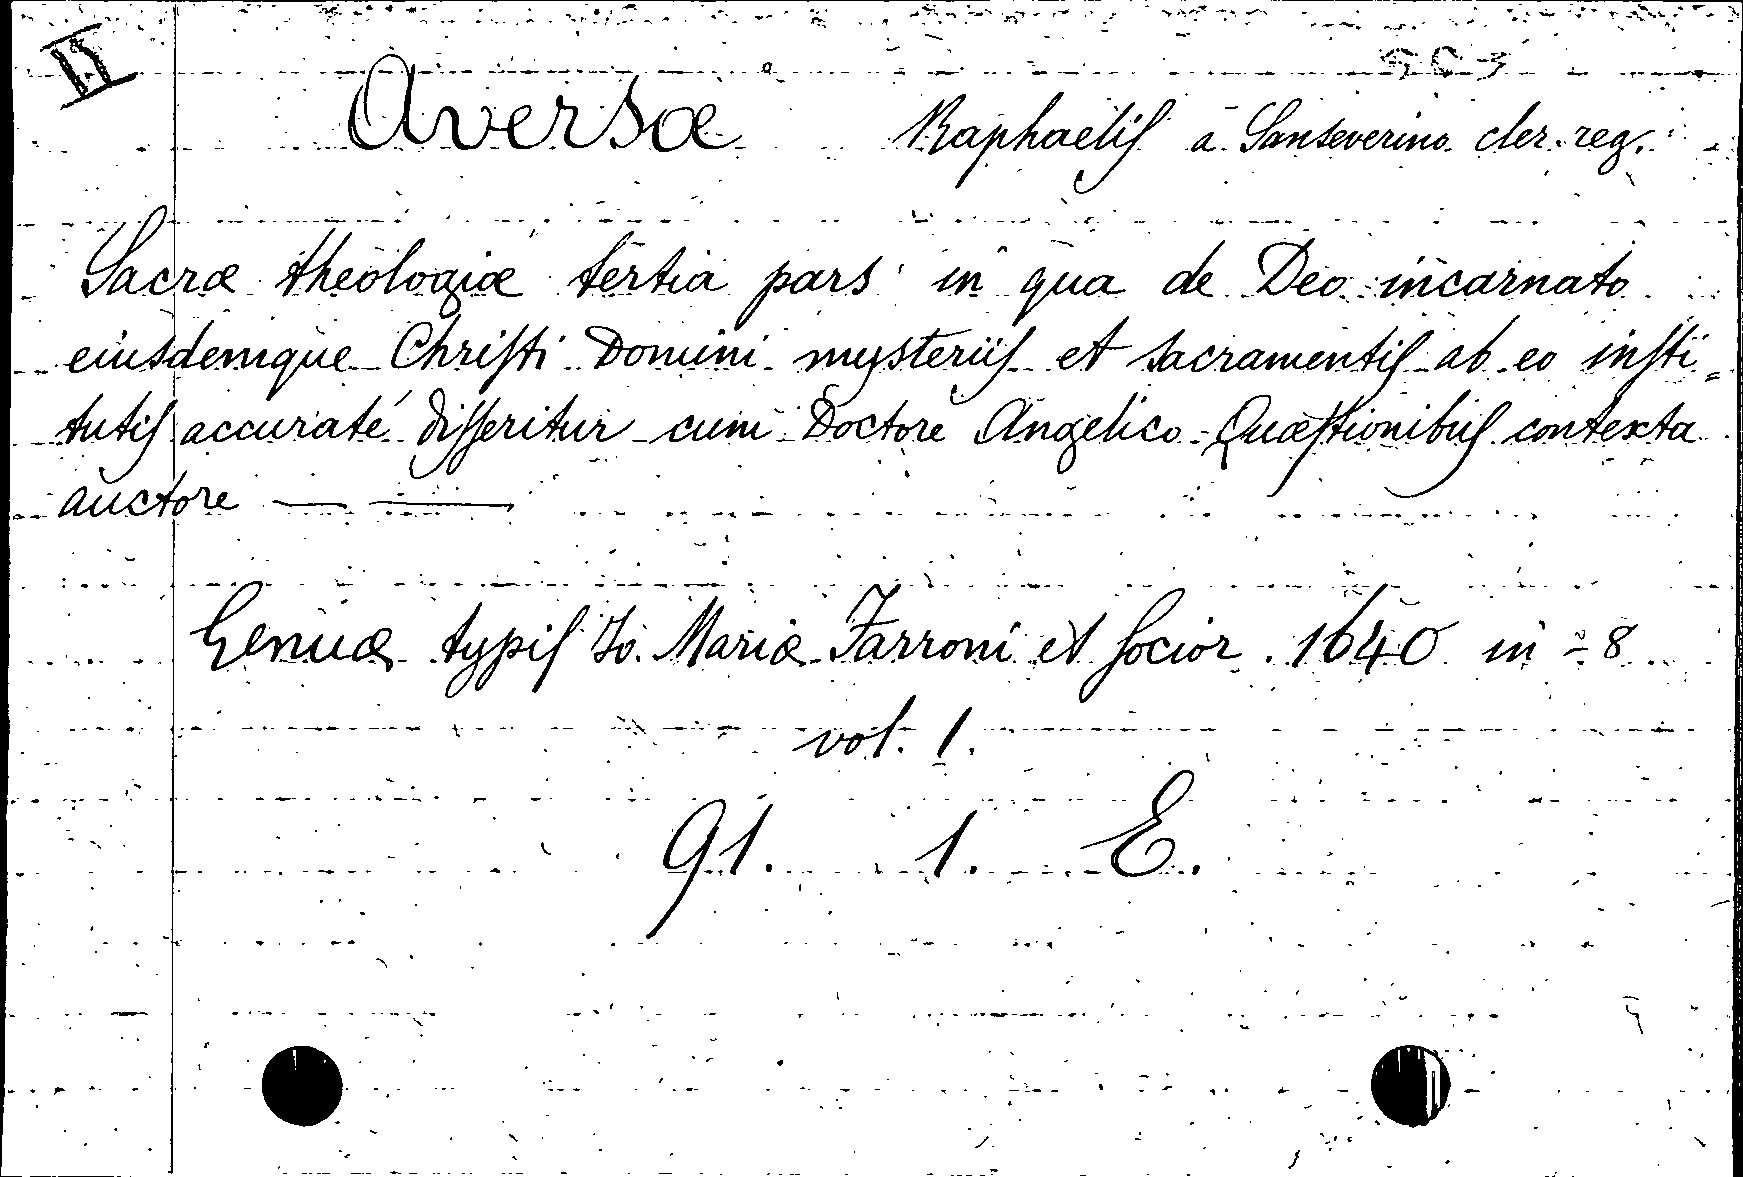 II
Aversæ Raphaelis a Sanseverino cler. reg.
Sacræ theologiæ tertia pars in qua de Deo incarnato
eiusdemque Christi Domini mysteriis et sacramentis ab eo insti=
tutis accuraté disseritur cum Doctore Angelico Quæstionibus contexta
auctore — —
Genuæ typis Io. Mariæ Farroni et socior. 1640 in-8
vol. 1.
91. 1. E.